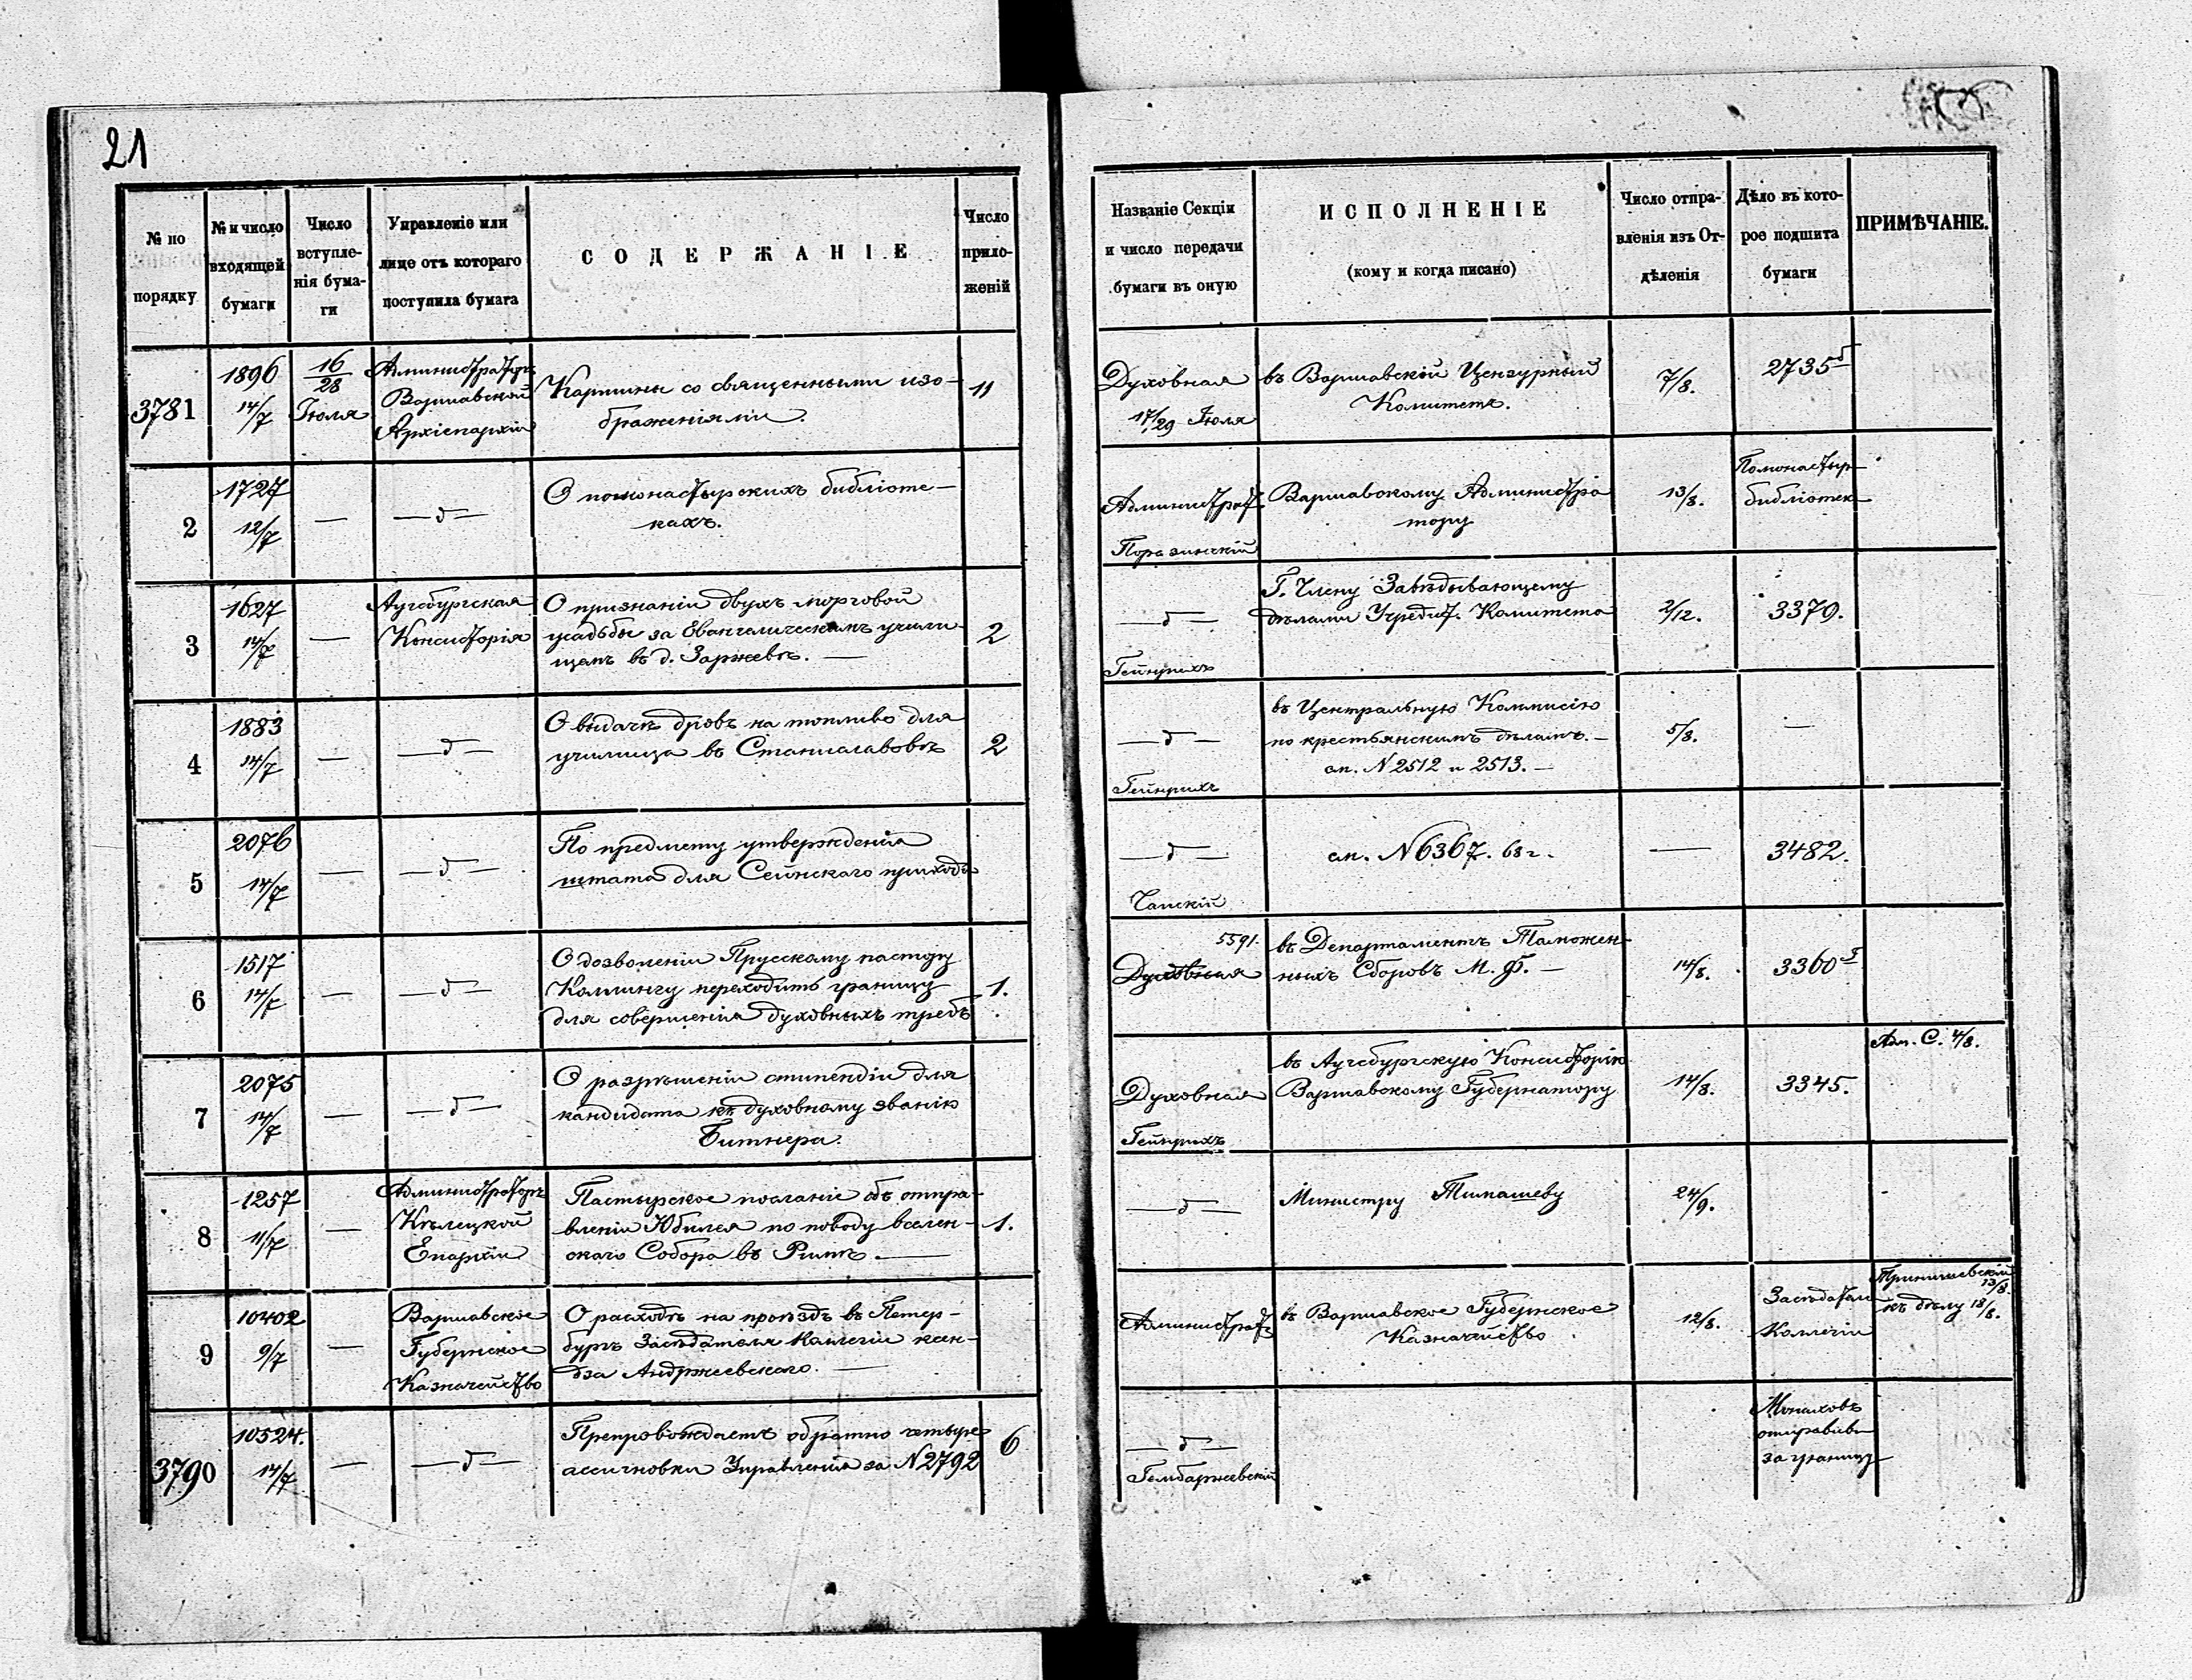 21
№ по порядку
№ и число входящей бумаги
Число вступленія бумаги
Управленіе или лице отъ котораго поступила бумага
СОДЕРЖАНІЕ
Число приложеній
Названіе Секціи и число передачи бумаги въ оную
ИСПОЛНЕНІЕ
(кому и когда писано)
Число отправленія изъ Отдѣленія
Дѣло въ которое подшита бумаги
ПРИМѢЧАНІЕ.
3781
1896
14/7
16/28
Іюля
Администраторъ
Варшавской
Архіепархіи
Картины со священными изо-
браженіями.
11
Духовная
17/29 Іюля
въ Варшавскій Цензурный
Комитетъ.
7/8.
2735б
2
1727
12/7
—
—д—
О помонастырскихъ библіоте-
кахъ.
Администрат.
Варшавскому Администра
тору
13/8.
Помонастыр
библіотек
3
1627
14/7
—
Аугсбургская
Консисторія
О признаніи двухъ морговой
усадьбы за Евангелическимъ учили-
щемъ въ д. Заржевѣ. —
2
—д—
Гейнрихъ
Г. Члену Завѣдывающему
дѣлами Учредит. Комитета
2/12.
3379.
4
1883
14/7
—
—д—
О выдачѣ дровъ на топливо для
училища въ Станиславовѣ
2
—д—
Гейнрихъ
въ Центральную Коммисію
по крестьянскимъ дѣламъ. —
см. N 2512 и 2513. —
5/8.
—
5
2076
14/7
—
—д—
По предмету утвержденія
штата для Сейнскаго прихода
—д—
Чапскій
см. N 6367. 68 г.
—
3482.
6
1517
14/7
—
—д—
О дозволеніи Прусскому пастору
переходить границу
для совершенія духовныхъ требъ
1.
5591.
Духовная
въ Департаментъ Таможен-
ныхъ Сборовъ М. Ф. —
14/8.
3360б
7
2075
14/7
—
—д—
О разрѣшеніи стипендіи для
кандидата къ духовному званію
Битнера.
Духовная
Гейнрихъ
въ Аугсбургскую Консисторію
Варшавскому Губернатору
14/8.
3345.
Адм. С. 4/8.
8
1257
11/7
—
Администраторъ
Кѣлецкой
Епархіи
Пастырское посланіе объ отпра-
вленіи Юбилея по поводу вселен-
скаго Собора въ Римѣ. —
1.
—д—
Министру Тимашеву
24/9.
9
10402
9/7
—
Варшавское
Губернское
Казначейство
О расходѣ на проѣздъ въ Петер-
бургъ Засѣдателя Коллегіи ксен-
дза Андржеевскаго. —
Администрат.
въ Варшавское Губернское
Казначейство
12/8.
Засѣдатели
Коллегіи
13/8.
къ дѣлу 18/8.
3790
10524.
14/7
—
—д—
Препровождаетъ обратно четыре
ассигновки Управленія за N 2792
6
—д—
Гембаржевскій
Монаховъ
за границу